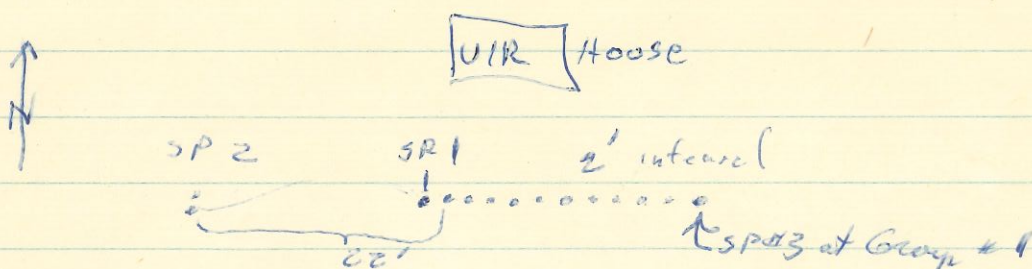 U/R House
N
SP 2 SP 1 2' interval
22'
SP#3 at Group # 1